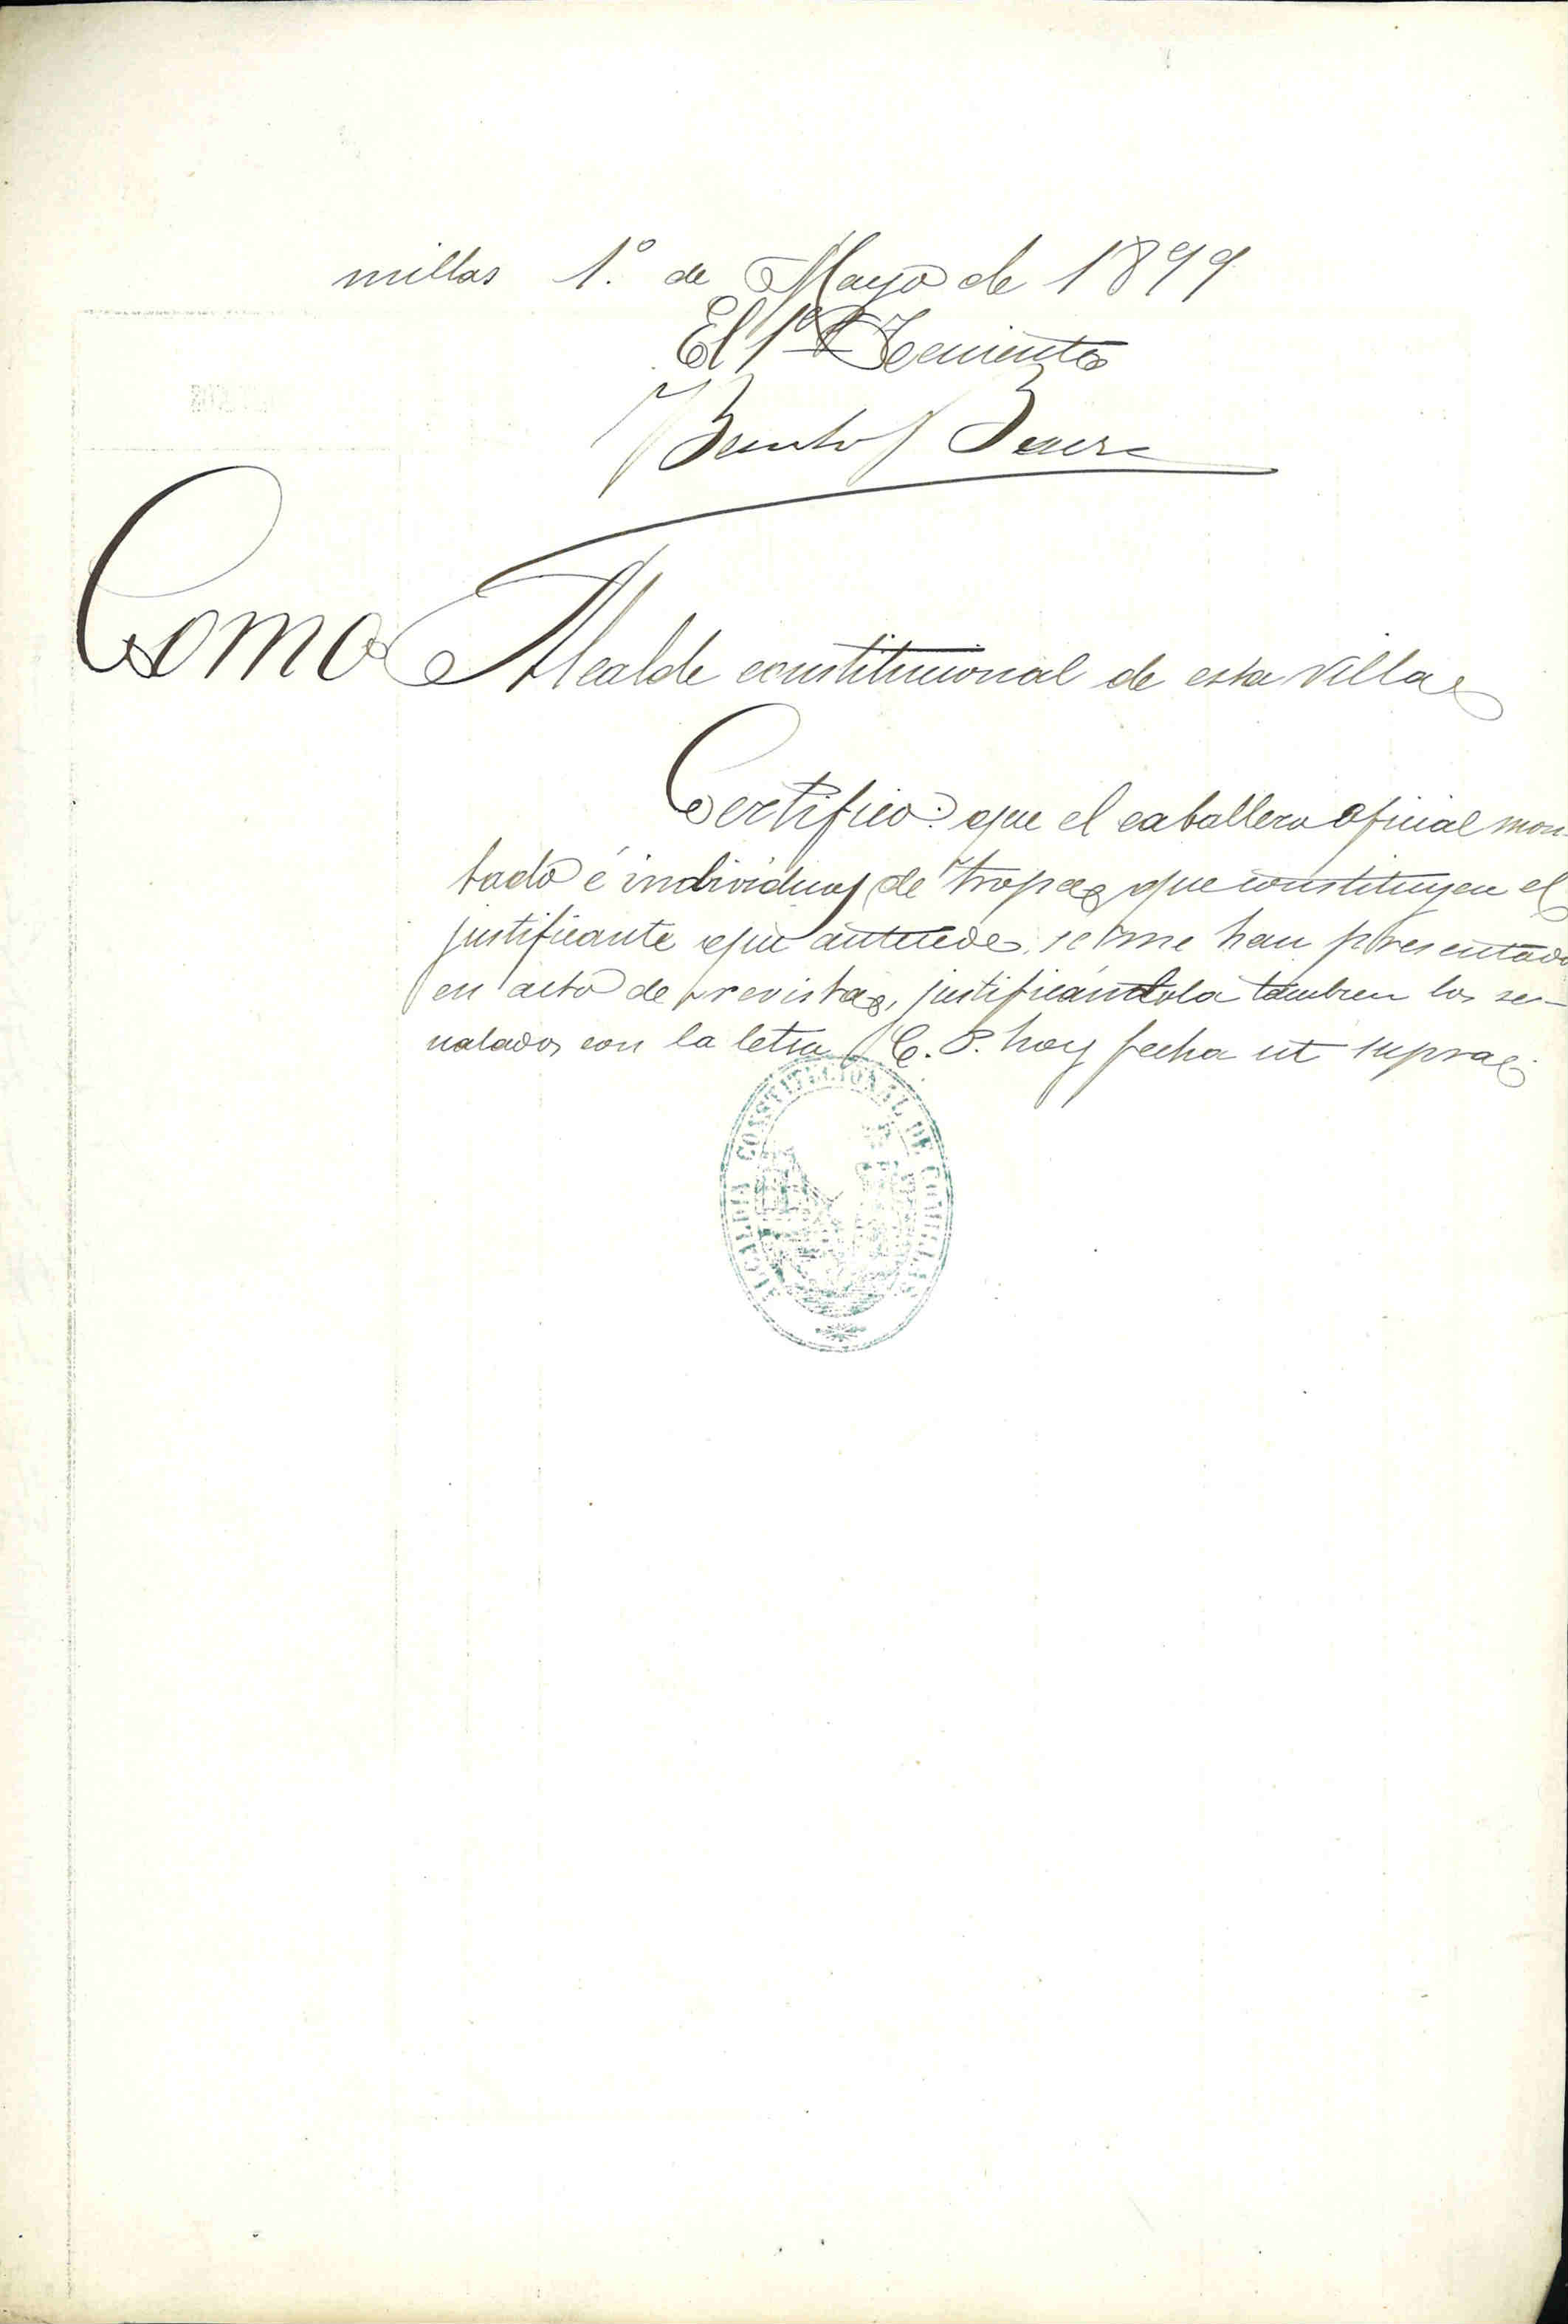 millas 1.º de Mayo de 1899
El 1er Teniente
Benito
Como Alcalde constitucional de esta villa
Certifico: que el caballero oficial mon-
tado é individuos de tropa que constituyen el
justificante que antecede, se me han presentado
en acto de revista, justificándola tambien los se-
ñalados con la letra C. P. hoy fecha ut supra.
ALCALDIA CONSTITUCIONAL DE COMILLAS